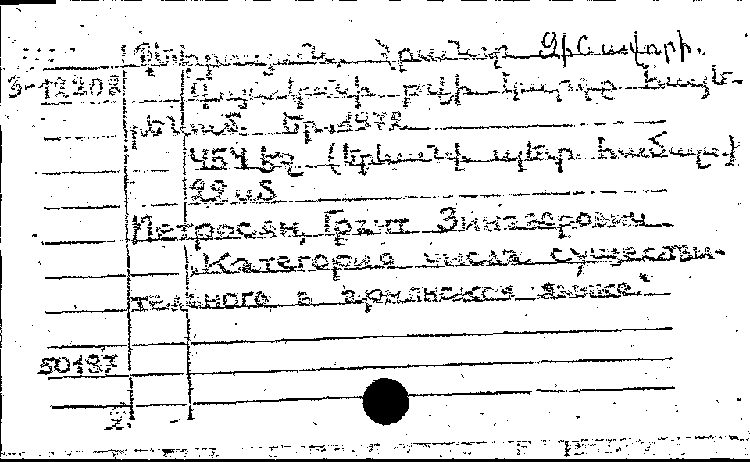 Պետրոսյան, Հրանտ Զինավորի.
3-12202 Գոյականի թվի կարգը հայե-
րենում. Եր., 1972
454 էջ (Երևանի պետ. համալ.)
22 սմ
Петросян, Грант Зинаворович
"Категория числа существи-
тельного в армянском языке."
50187
2.